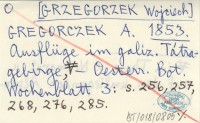 O [GRZEGORZEK Wojciech]
GREGORCZEK A. 1853.
Ausflüge im galiz. Tatra-
gebirge, # – Oesterr. Bot.
Wochenblatt 3: s. 256, 257,
268, 276, 285.
BT/018/0805